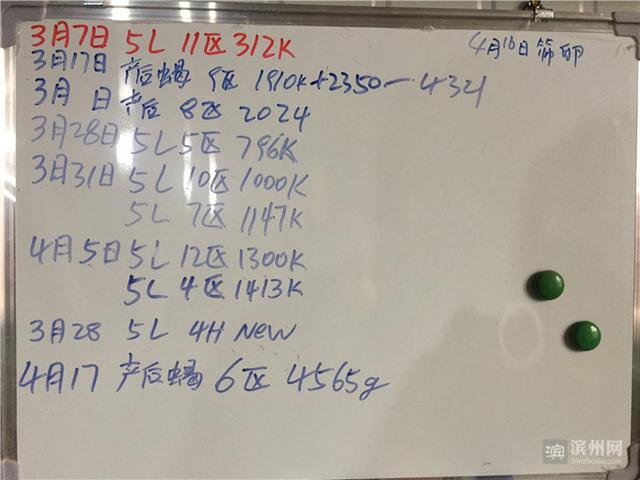 3月7日 5L 11区 312K
4月16日 筛卵
3月17日 产后蝎 9区 1910K+2350—4321
3月 日 产后 8区 2024
3月28日 5L 5区 796K
3月31日 5L 10区 1000K
5L 7区 1147K
4月5日 5L 12区 1300K
5L 4区 1413K
3月28 5L 4H New
4月17 产后蝎 6区 4565g
滨 滨州网
binzhouw.com